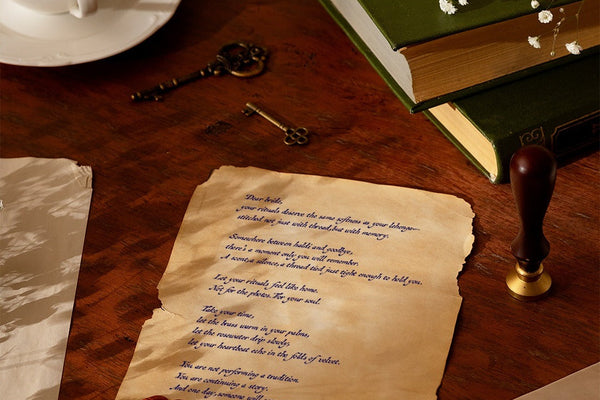 Dear bride,
your rituals deserve the same softness as your lehenga—
stitched not just with thread, but with memory.
Somewhere between haldi and goodbye,
there's a moment only you will remember.
A scent, a silence, a thread tied just tight enough to hold you.
Let your rituals feel like home.
Not for the photos. For your soul.
Take your time,
let the brass warm in your palms,
let the rosewater drip slowly,
let your heartbeat echo in the folds of velvet.
You are not performing a tradition.
You are continuing a story.
And one day, someone will